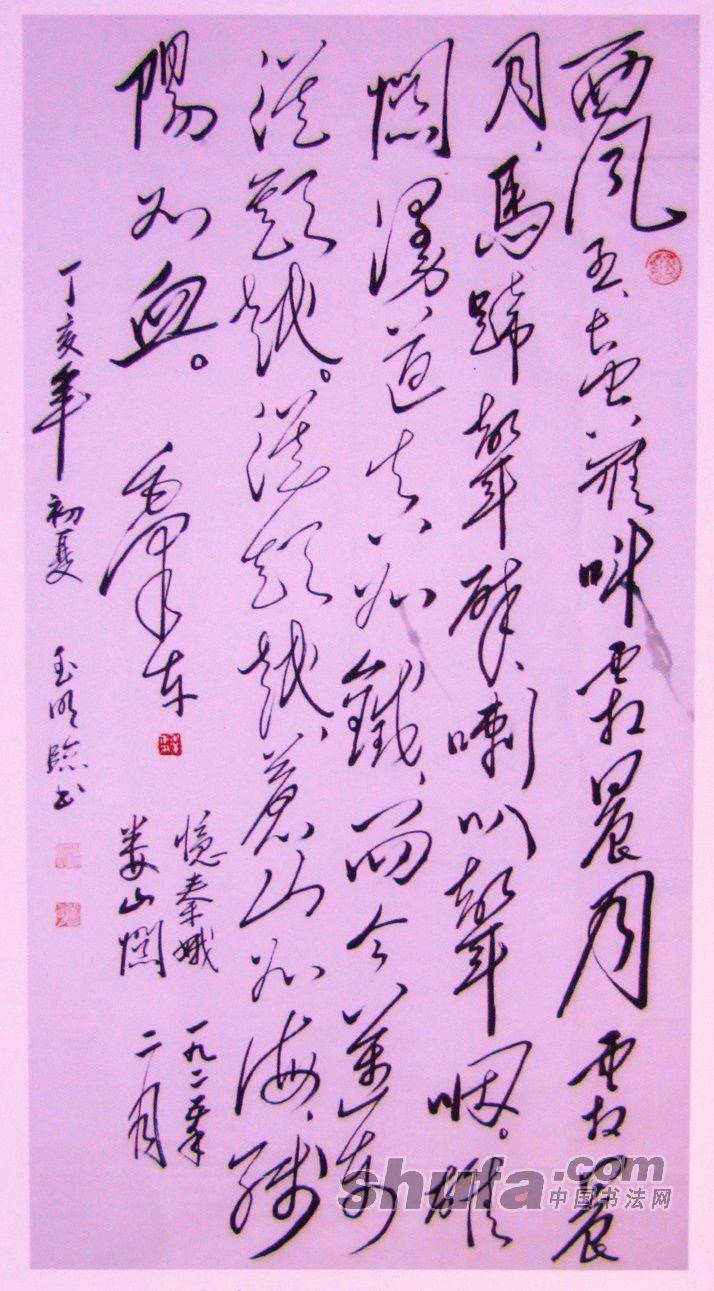 西風烈、长空雁叫霜晨月霜晨
月、馬蹄聲碎、喇叭聲咽。雄
關漫道真如鐵、而今邁步
從頭越。從頭越、蒼山如海、殘
陽如血。毛澤東
憶秦娥
娄山關
一九三五年
二月
丁亥年初夏 玉明臨书
shufa.com
中国书法网